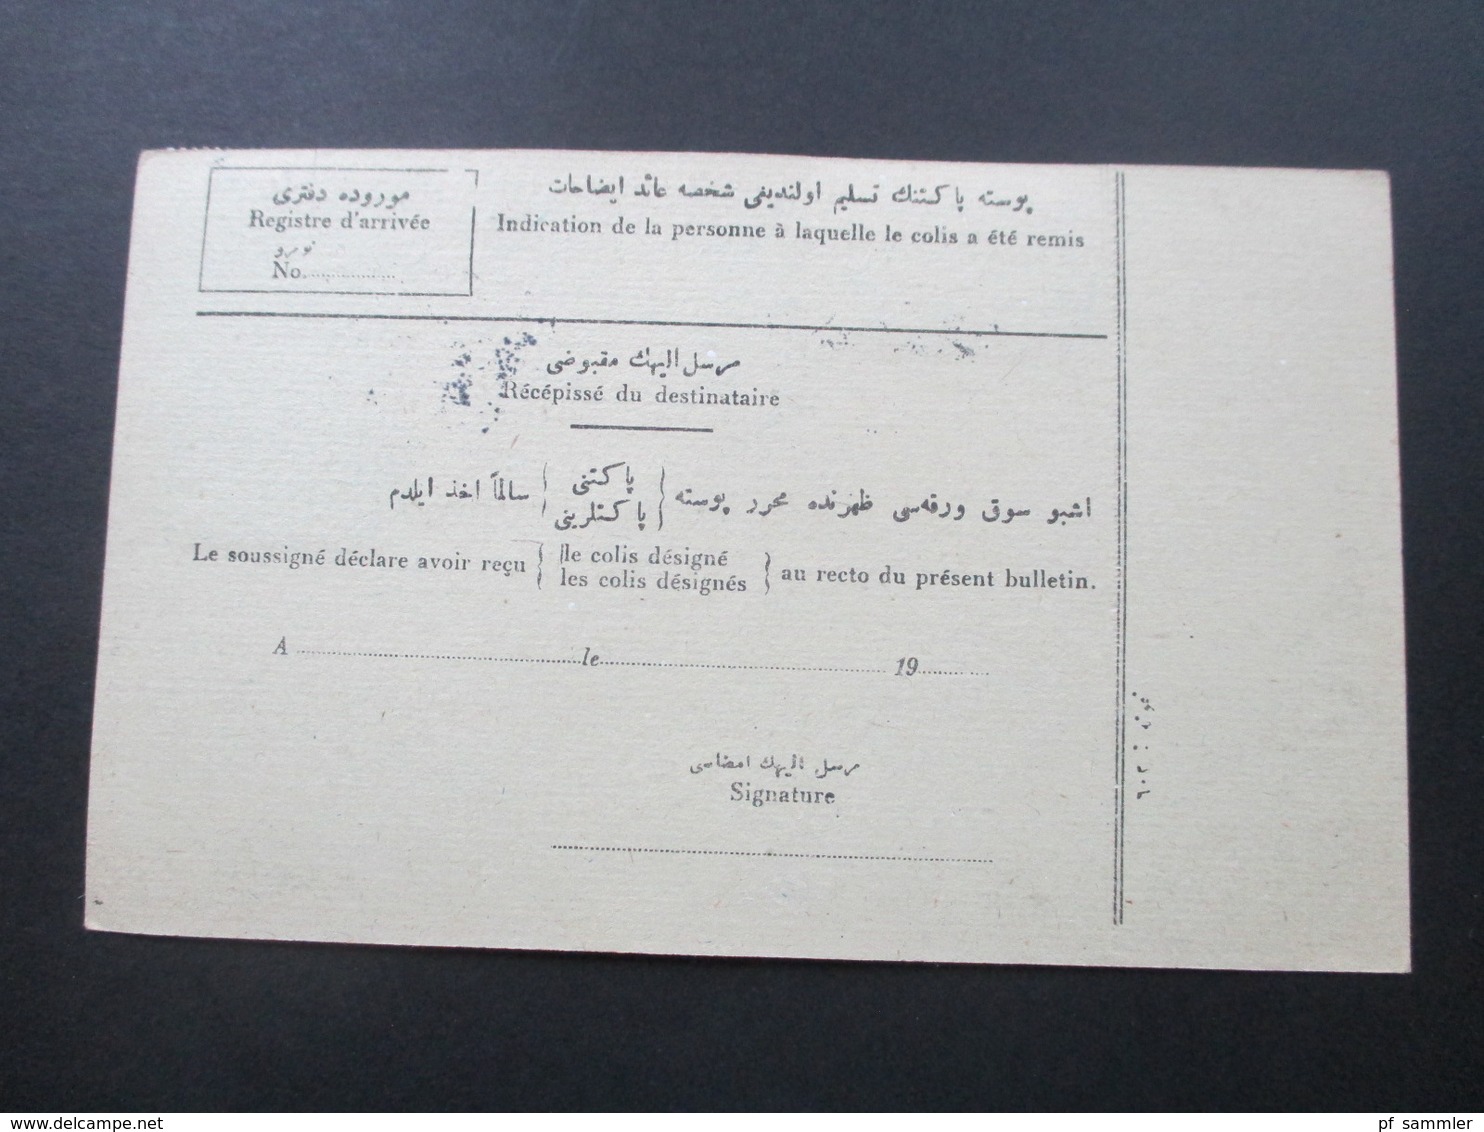 موروده دفتری
Registre d'arrivée
نومرو
No.
پوسته پاکتنك تسليم اولنديغی شخصه عائد ايضاحات
Indication de la personne à laquelle le colis a été remis
مرسل اليهك مقبوضی
Récépissé du destinataire
اشبو سوق ورقه‌سی ظهرنده محرر پوسته { پاکتنی
پاکتلرينی } سالماً اخذ ايلدم
Le soussigné déclare avoir reçu { le colis désigné
les colis désignés } au recto du présent bulletin.
A le 19
مرسل اليهك امضاسی
Signature
نمونه : ٦٠٢
delcampe.net
pf_sammler